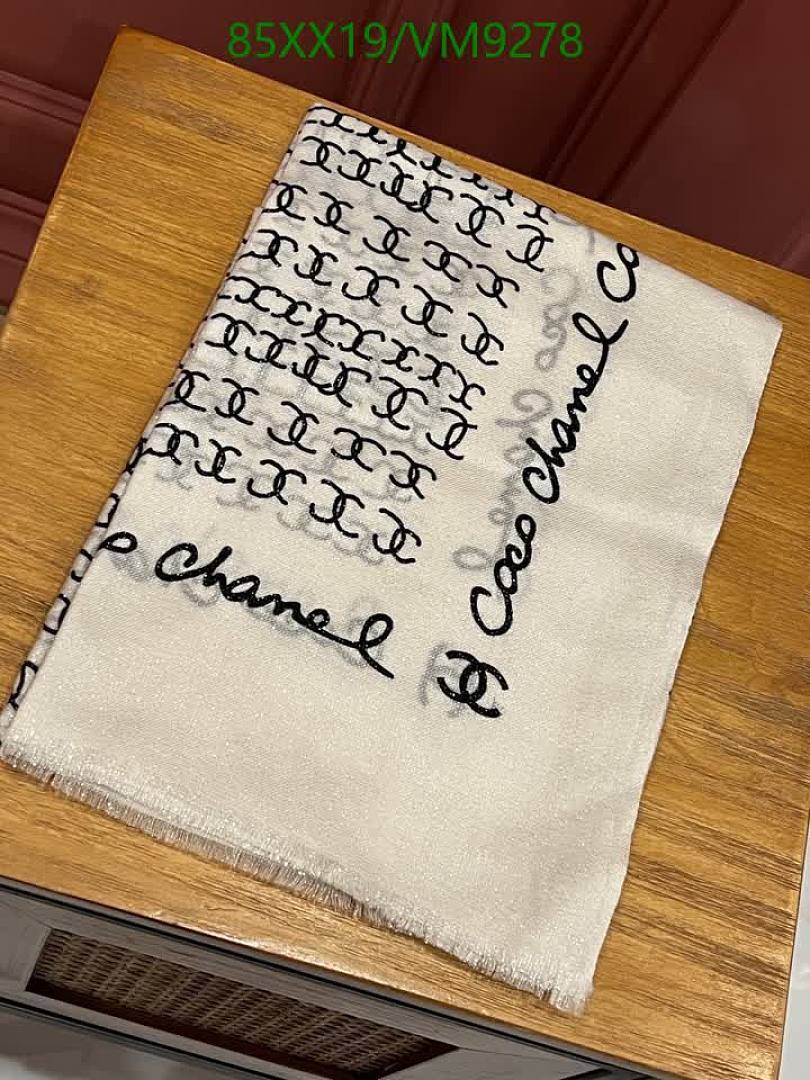 85XX19/VM9278
Coco Chanel Co
o Chanel